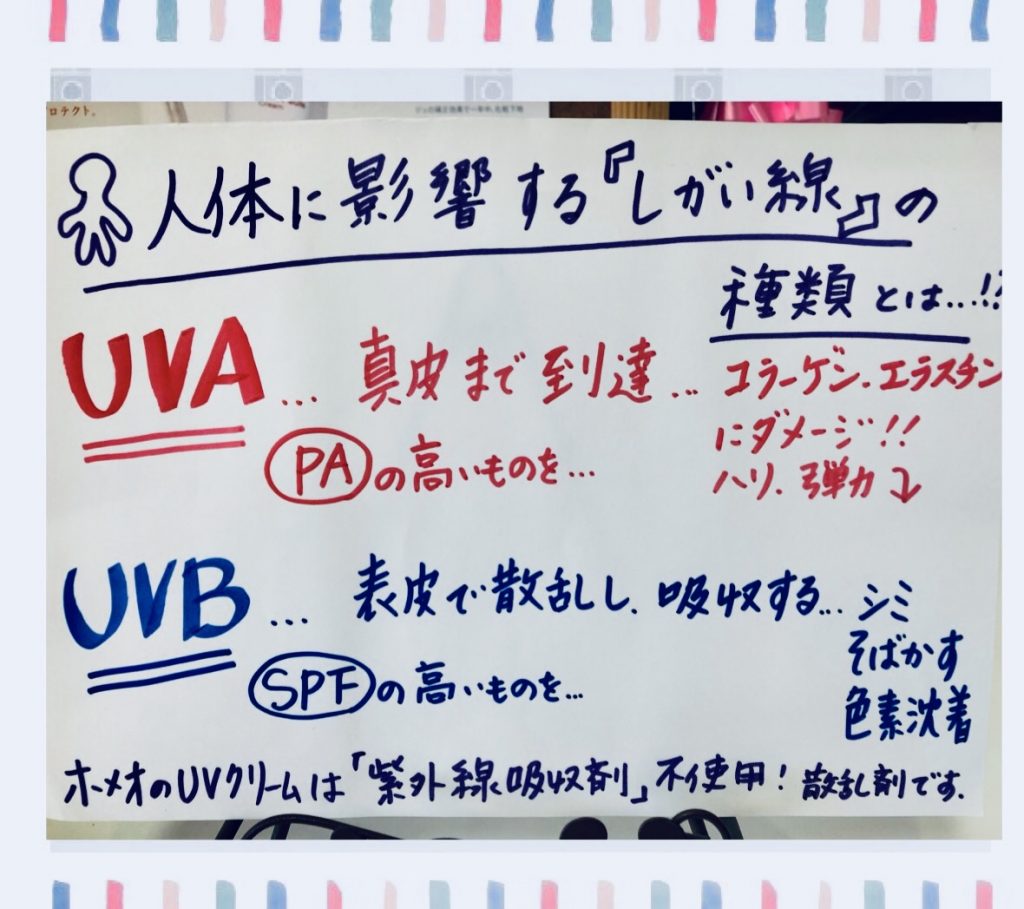 ロテクト。
人体に影響する『しがい線』の
種類とは...!?
UVA... 真皮まで到達... コラーゲン、エラスチン
にダメージ!!
ハリ、弾力↓
PAの高いものを...
UVB... 表皮で散乱し、吸収する... シミ
そばかす
色素沈着
SPFの高いものを...
ホメオのUVクリームは「紫外線吸収剤」不使用! 散乱剤です.